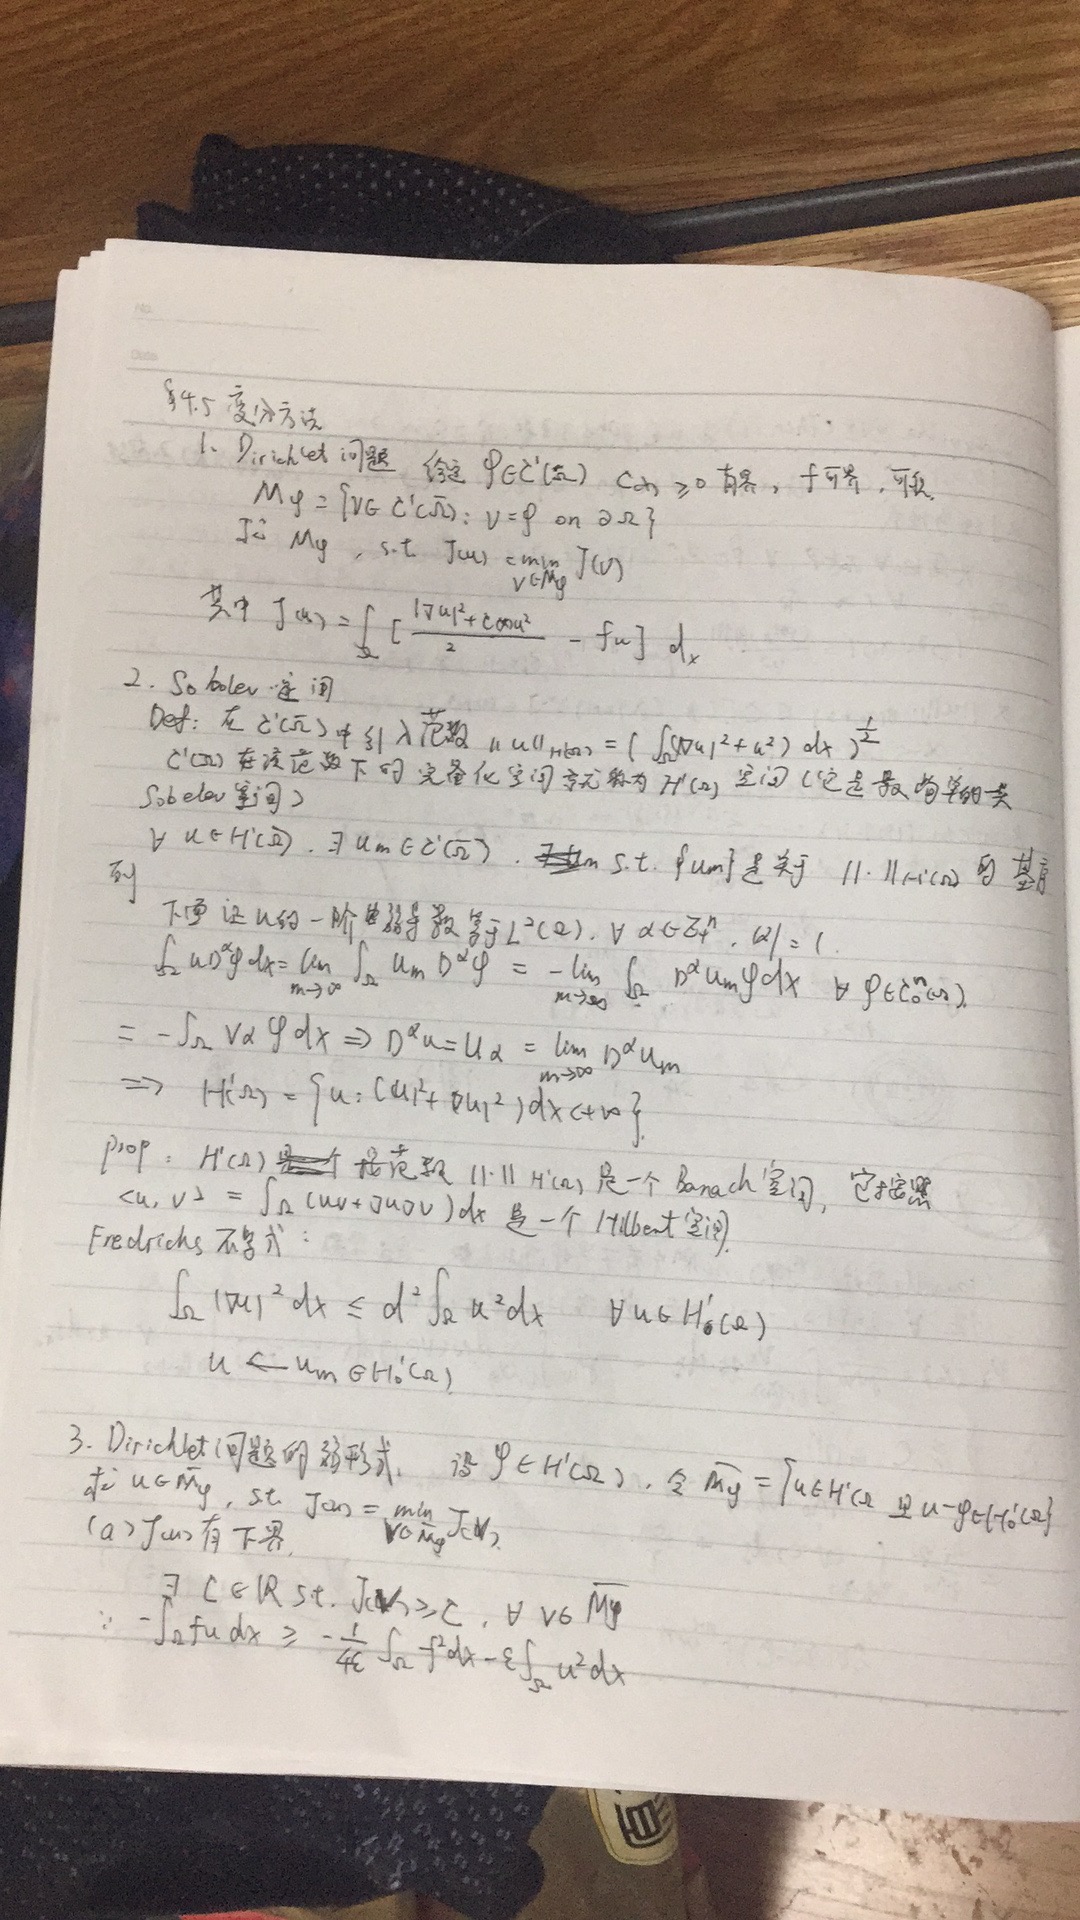 No.
Date
§4.5 变分方法
1. Dirichlet 问题 给定 φ∈C¹(Ω̅) c(x)≥0 有界, f可界, 可积.
Mφ = {v∈C¹(Ω̅): v=φ on ∂Ω}
求 Mφ, s.t. J(u) = min_{v∈Mφ} J(v)
其中 J(u) = ∫_Ω [ (|∇u|²+c(x)u²)/2 - fu ] dx
2. Sobolev 空间
Def: 在 C¹(Ω̅) 中引入范数 ||u||_{H¹(Ω)} = (∫_Ω(|∇u|²+u²) dx)^{1/2}
C¹(Ω̅) 在该范数下的完备化空间 称为 H¹(Ω) 空间 (它是最简单的一类
Sobelev 空间)
∀ u∈H¹(Ω̅). ∃ um∈C¹(Ω̅). s.t. {um}是关于 ||·||_{H¹(Ω)} 的基序
列
下面证 u的一阶弱导数等于L²(Ω). ∀ α∈Z₊ⁿ. |α|=1.
∫_Ω uD^αφdx = lim_{m→∞} ∫_Ω um D^αφ = -lim_{m→∞} ∫_Ω D^αumφdx ∀ φ∈C₀^∞(Ω).
= -∫_Ω Vα φdx ⇒ D^αu = Uα = lim_{m→∞} D^αum
⇒ H¹(Ω) = {u: (|u|²+|∇u|²)dx<+∞}.
prop: H¹(Ω) 按范数 ||·||_{H¹(Ω)} 是一个 Banach 空间, 它按照
<u, v> = ∫_Ω (uv+∇u∇v)dx 是一个 Hilbert 空间.
Fredrichs 不等式:
∫_Ω |∇u|²dx ≤ d² ∫_Ω u²dx ∀u∈H₀¹(Ω)
u ← um∈H₀¹(Ω)
3. Dirichlet 问题的弱形式. 设 φ∈H¹(Ω). 令 M̅φ = {u∈H¹(Ω 且 u-φ∈H₀¹(Ω}
求 u∈M̅φ, s.t. J(u) = min_{v∈M̅φ} J(v).
(a) J(u) 有下界.
∃ C∈ℝ s.t. J(v)≥C, ∀ v∈M̅φ
∵ -∫_Ω fu dx ≥ -1/4ε ∫_Ω f²dx - ε∫_Ω u²dx